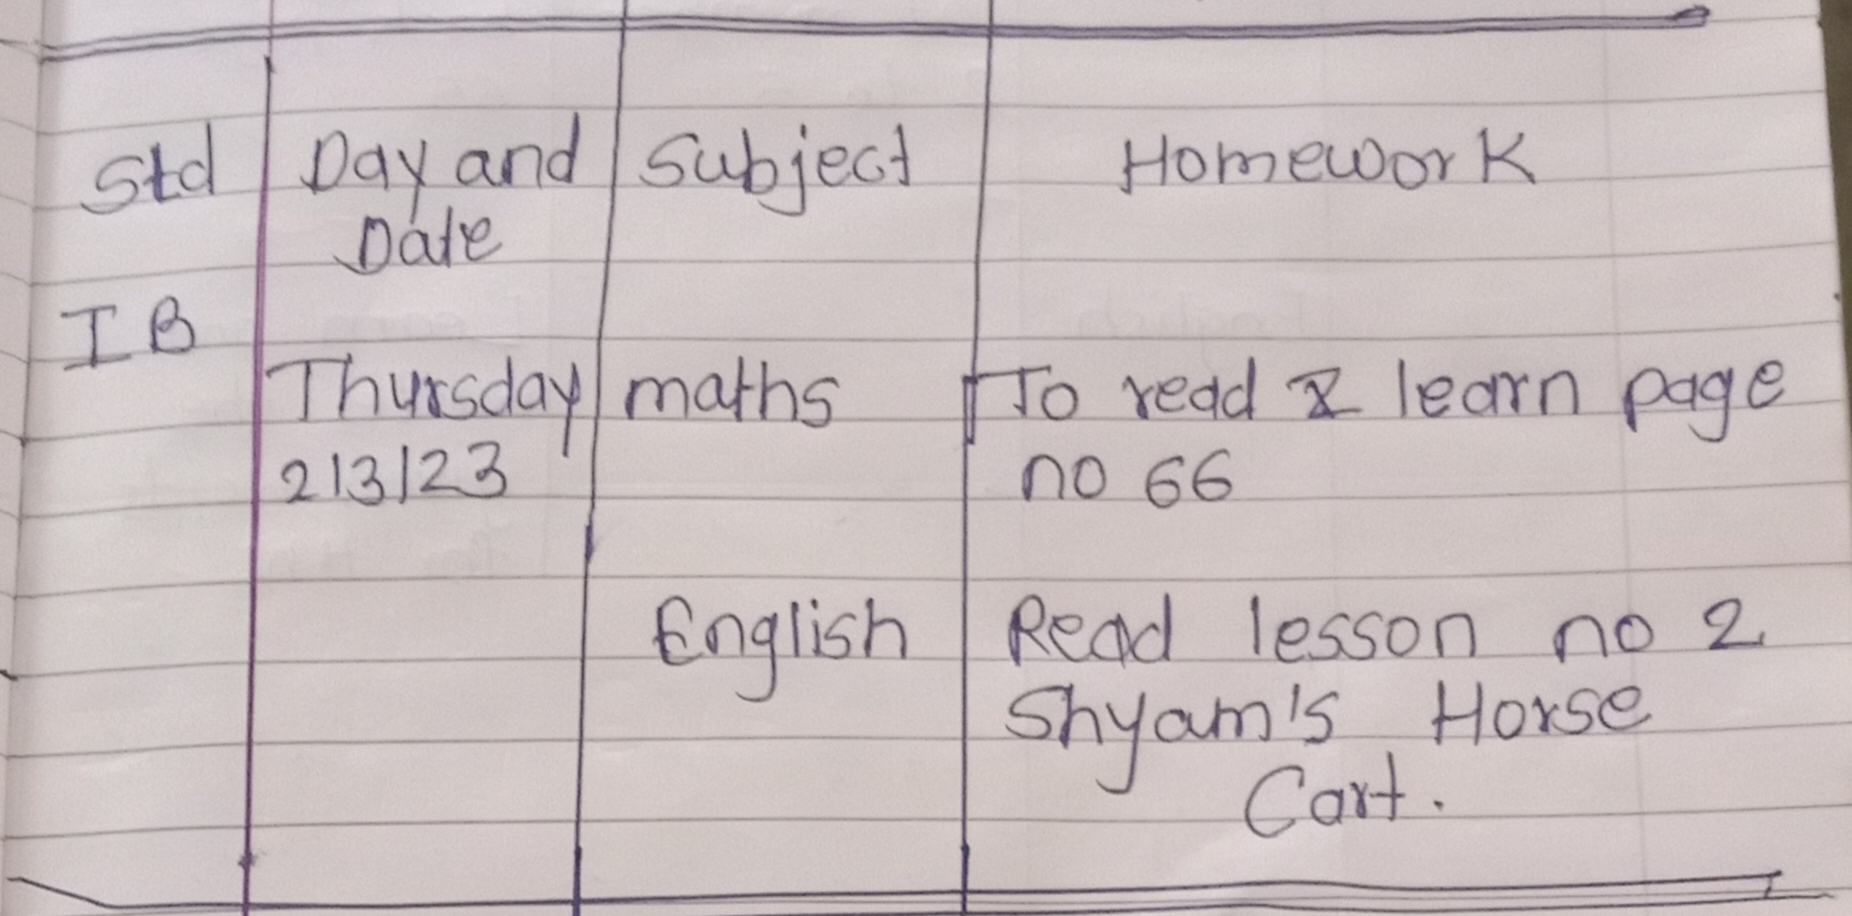 Std Day and Subject Homework
Date
I B
Thursday maths To read & learn page
2/3/23 no 66
English Read lesson no 2
Shyam's Horse
Cart.